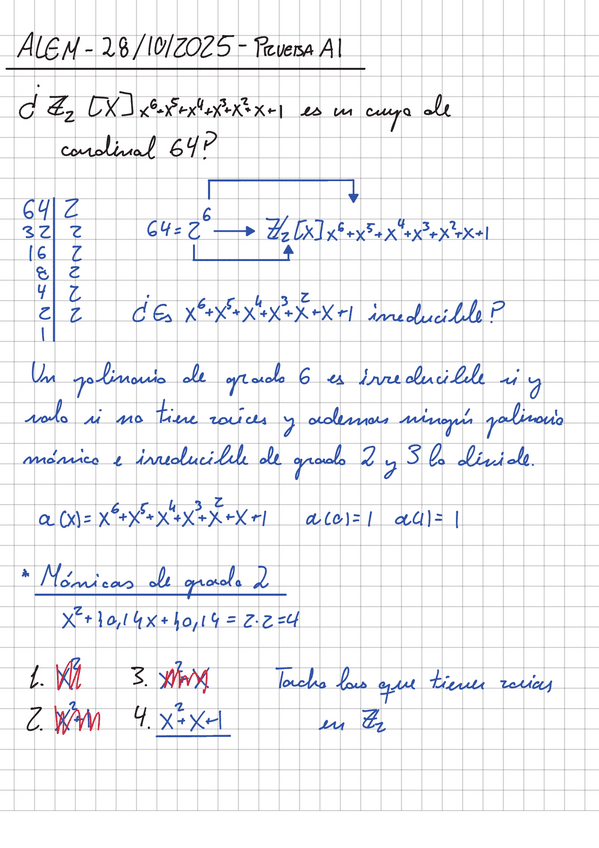 ALEM - 28/10/2025 - PRUEBA A1
¿ ℤ₂ [X] x⁶+x⁵+x⁴+x³+x²+x+1 es un cuerpo de
cardinal 64?
64 | 2
32 | 2
16 | 2
8 | 2
4 | 2
2 | 2
1 |
64 = 2⁶ → ℤ₂ [X] x⁶+x⁵+x⁴+x³+x²+x+1
¿Es x⁶+x⁵+x⁴+x³+x²+x+1 irreducible?
Un polinomio de grado 6 es irreducible si y
solo si no tiene raíces y ademas ningún polinomio
mónico e irreducible de grado 2 y 3 lo divide.
a(x) = x⁶+x⁵+x⁴+x³+x²+x+1 a(0)=1 a(1)=1
* Mónicos de grado 2
x²+{0,1}x+{0,1} = 2·2=4
1. x² 3. x²+x Tacho los que tienen raíces
2. x²+1 4. x²+x+1 en ℤ₂